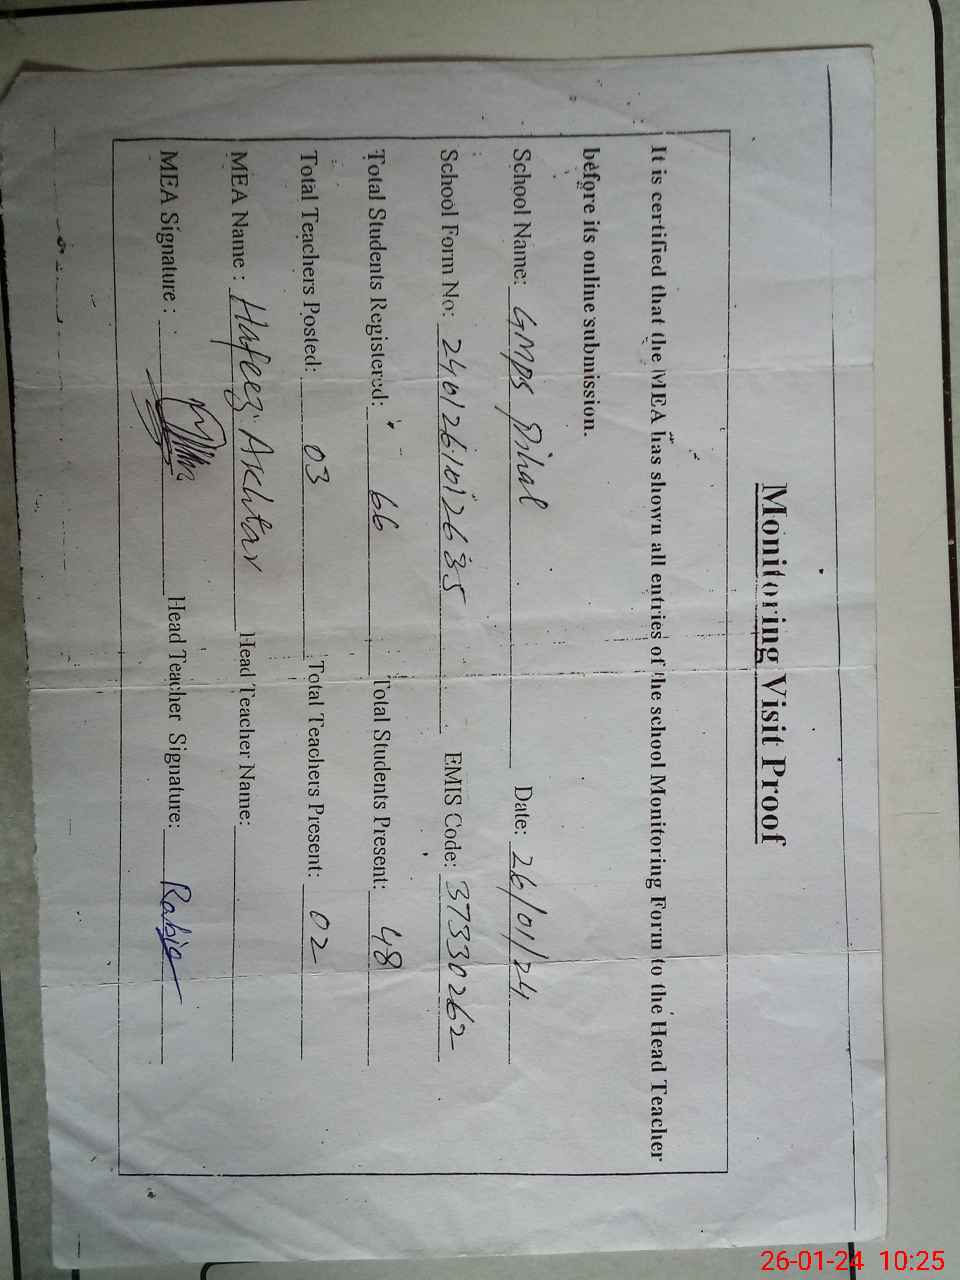 Monitoring Visit Proof
It is certified that the MEA has shown all entries of the school Monitoring Form to the Head Teacher
before its online submission.
School Name: GMPS Dihal Date: 26/01/24
School Form No: 2401261012635 EMIS Code: 37330262
Total Students Registered: 66 Total Students Present: 48
Total Teachers Posted: 03 Total Teachers Present: 02
MEA Name : Hafeez Akhtar Head Teacher Name:
MEA Signature : Head Teacher Signature: Rabia
26-01-24 10:25